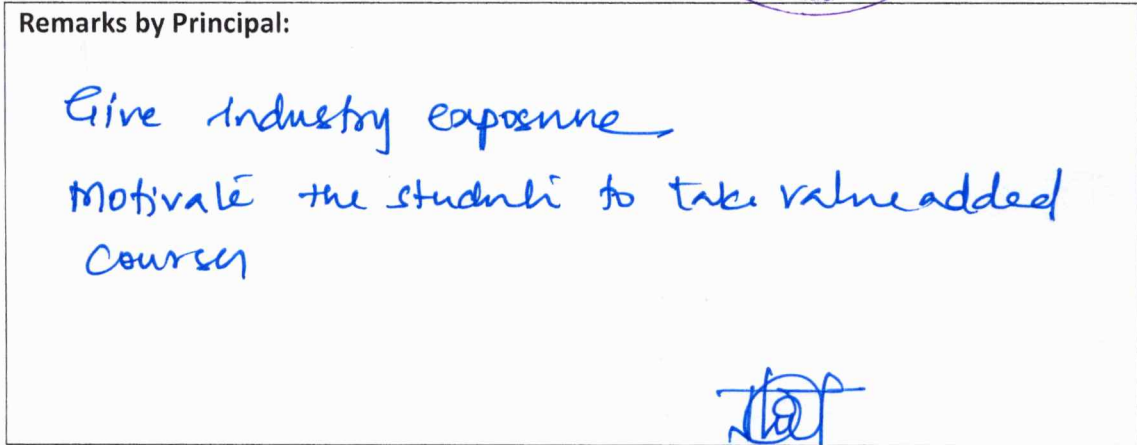 Remarks by Principal:
Give Industry exposure
Motivate the students to take value added
courses